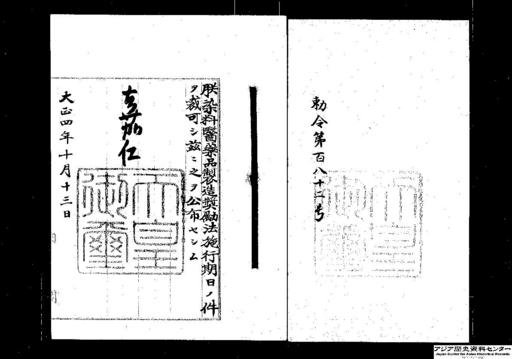 勅令第百八十二号
朕染料醫藥品製造奬勵法施行期日ノ件
ヲ裁可シ茲ニ之ヲ公布セシム
嘉仁
天皇御璽
大正四年十月十三日
アジア歴史資料センター
Japan Center for Asian Historical Records